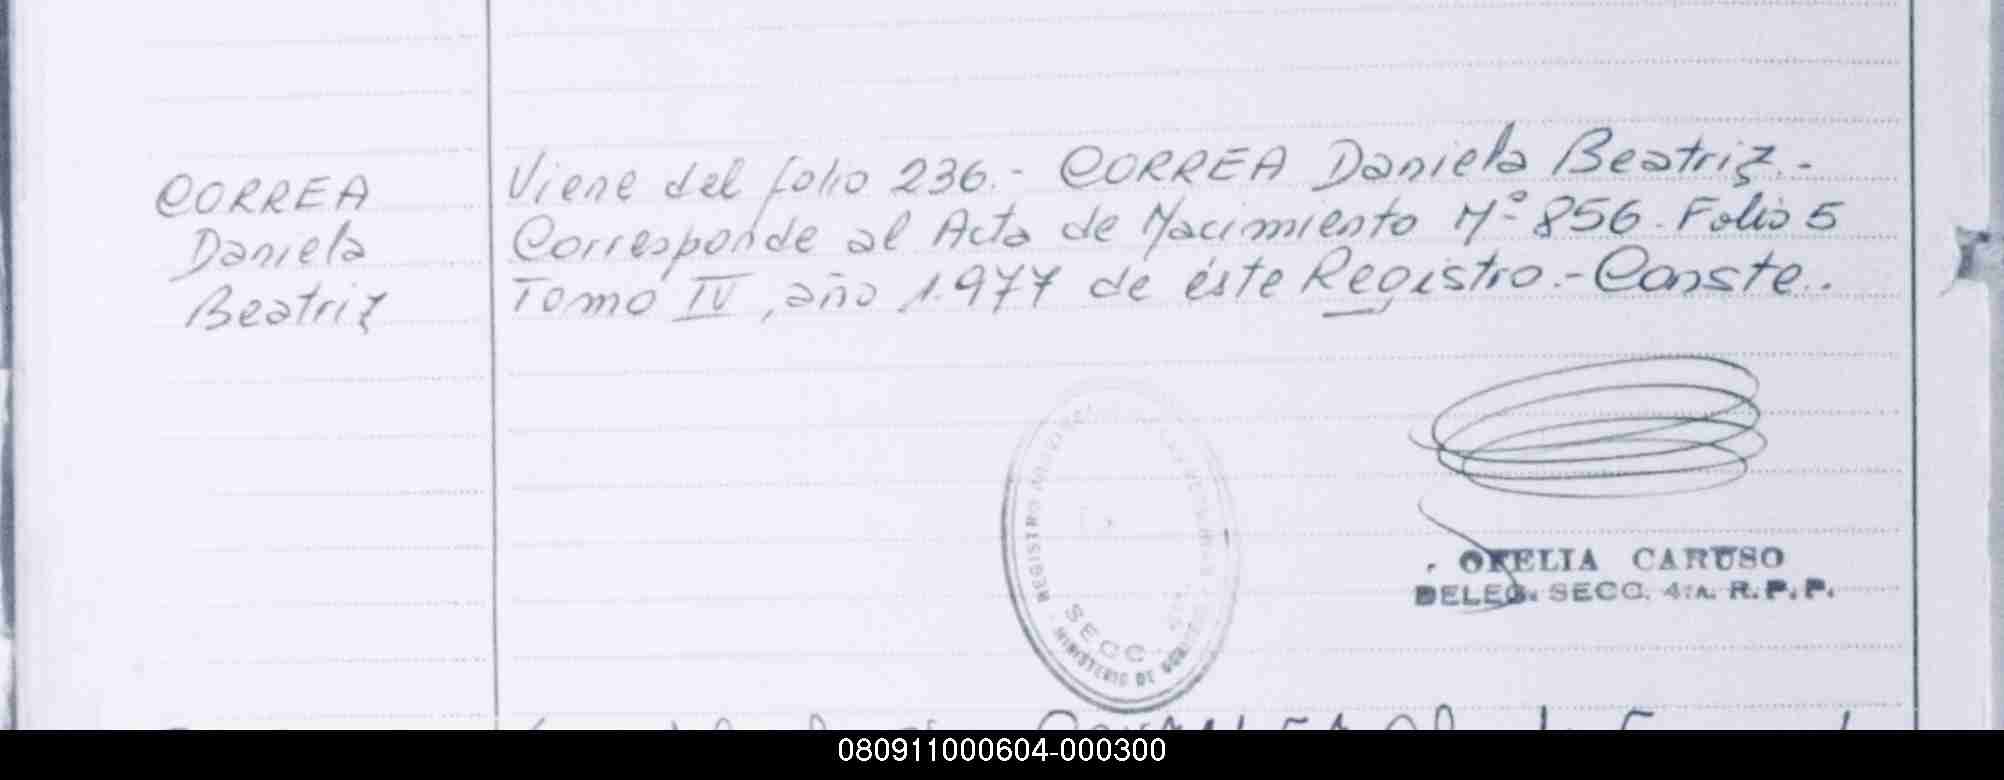 CORREA
Daniela
Beatriz
Viene del folio 236.- CORREA Daniela Beatriz.-
Corresponde al Acta de Nacimiento Nº 856. Folio 5
Tomo IV, año 1.977 de éste Registro.- Conste.
REGISTRO
SECC.
MINISTERIO DE
OFELIA CARUSO
DELEG. SECC. 4:A. R.P.P.
080911000604-000300